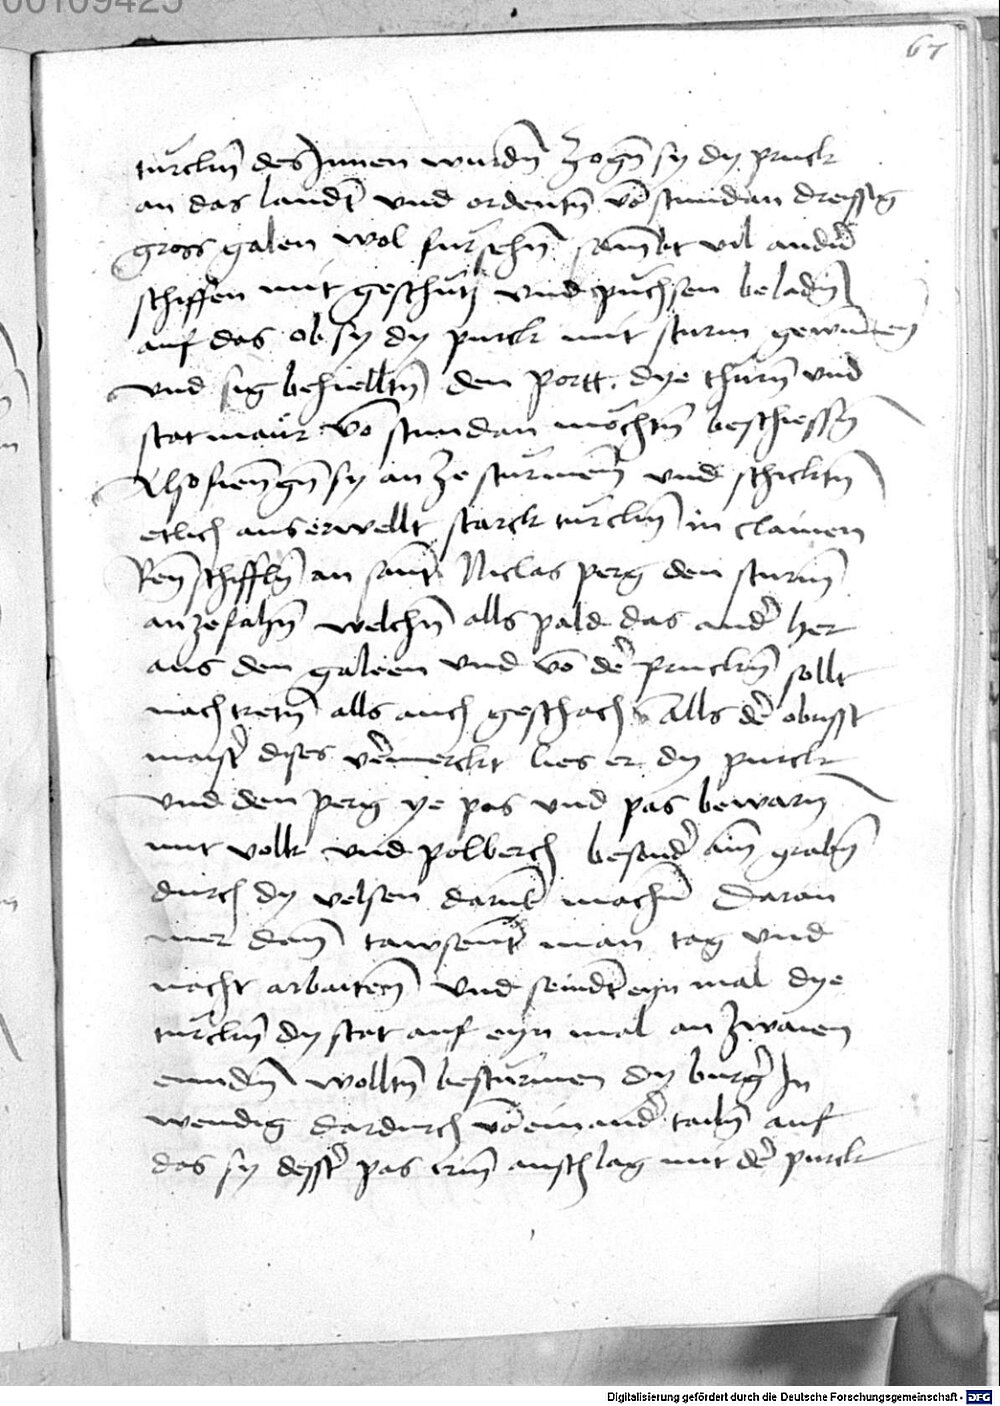 00109425
67
turckn̄ des Innen wurdn̄ zogn̄ sy dy pruck
an das landt und ordentn̄ vō stundan dreissig
gross galen wol fursehn̄ sambt vil andr̄
schiffen mit geschutz und puchsen beladn̄
auf das ob sy dy purck mit sturm gewunen
und sig behielltn̄ den portt. dye thurn̄ und
statmaur vō stundan mochtn̄ beschiessn̄
Also fienn̄gn̄ sy an ze sturmen̄ und schicktn̄
etlich auserwellt starck turckn̄ in clainen
Ren̄schiffln̄ an sant Niclas perg den sturm̄
anzefahn̄ welchn̄ alls pald das andr̄ her
aus den galeen und vō dr̄ pruckn̄ sollt
nachtretn̄ alls auch geschach Alls dr̄ obrisst
maistr̄ dises vermerckt lies er dy purck
und den perg ye pas und pas bewarn
mit volk und polberch besondr̄ ain̄ grabn̄
durch dy velsen darunt machn̄ Daran
mer dan̄ tawsent man tag und
nacht arbaiten̄ und seindt eyn mal dye
turckn̄ dy stat auf eyn mal an zwaien
enndn̄ wolltn̄ besturmen dy burgr̄ In
wendig dardurch vō einandr̄ tailn̄ auf
das sy desstr̄ pas irn̄ anschlag mit dr̄ purck
Digitalisierung gefördert durch die Deutsche Forschungsgemeinschaft - DFG